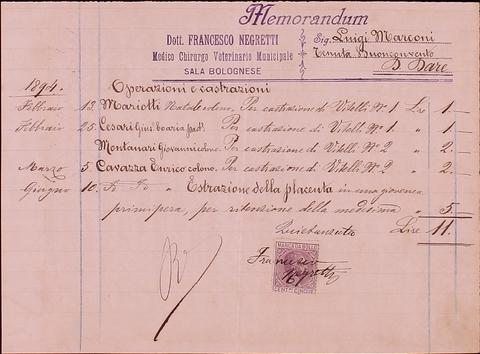 Memorandum
Dott. FRANCESCO NEGRETTI
Medico Chirurgo Veterinario Municipale
SALA BOLOGNESE
Sig. Luigi Marconi
Tenuta Buonconvento
1894. Operazioni e castrazioni
Febbraio 12. Mariotti Per castrazione di Vitelli N° 1. Lire 1 —
Febbraio 25. Cesari Per castrazione di Vitelli N° 1. " 1 —
Montanari Giovanni colono. Per castrazione di Vitelli N° 2 " 2 —
Marzo 5 Cavazza Enrico colono. Per castrazione di Vitelli N° 2 " 2 —
Giugno 10. " Estrazione della placenta in una giovenca
primipera, per ritenzione della medesima " 5 —
Quietanzato Lire 11. —
MARCA DA BOLLO
Francesco
Negretti
CENT. CINQUE